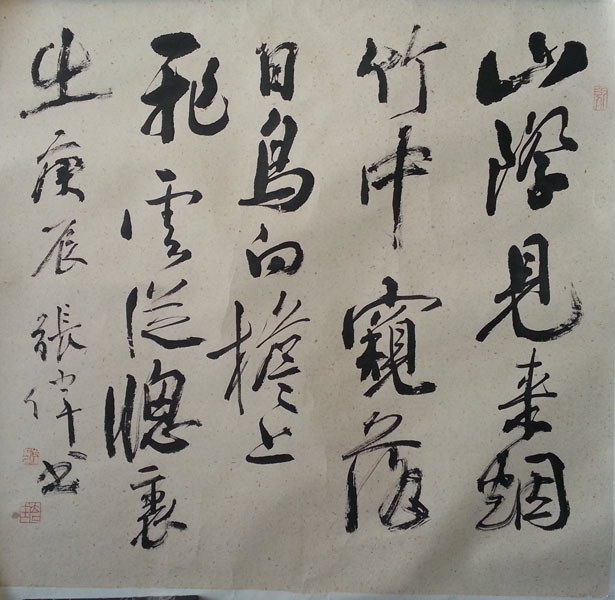 山際見来烟
竹中窺落
日鳥向檐上
飛雲從牕裏
出庚辰張偉书